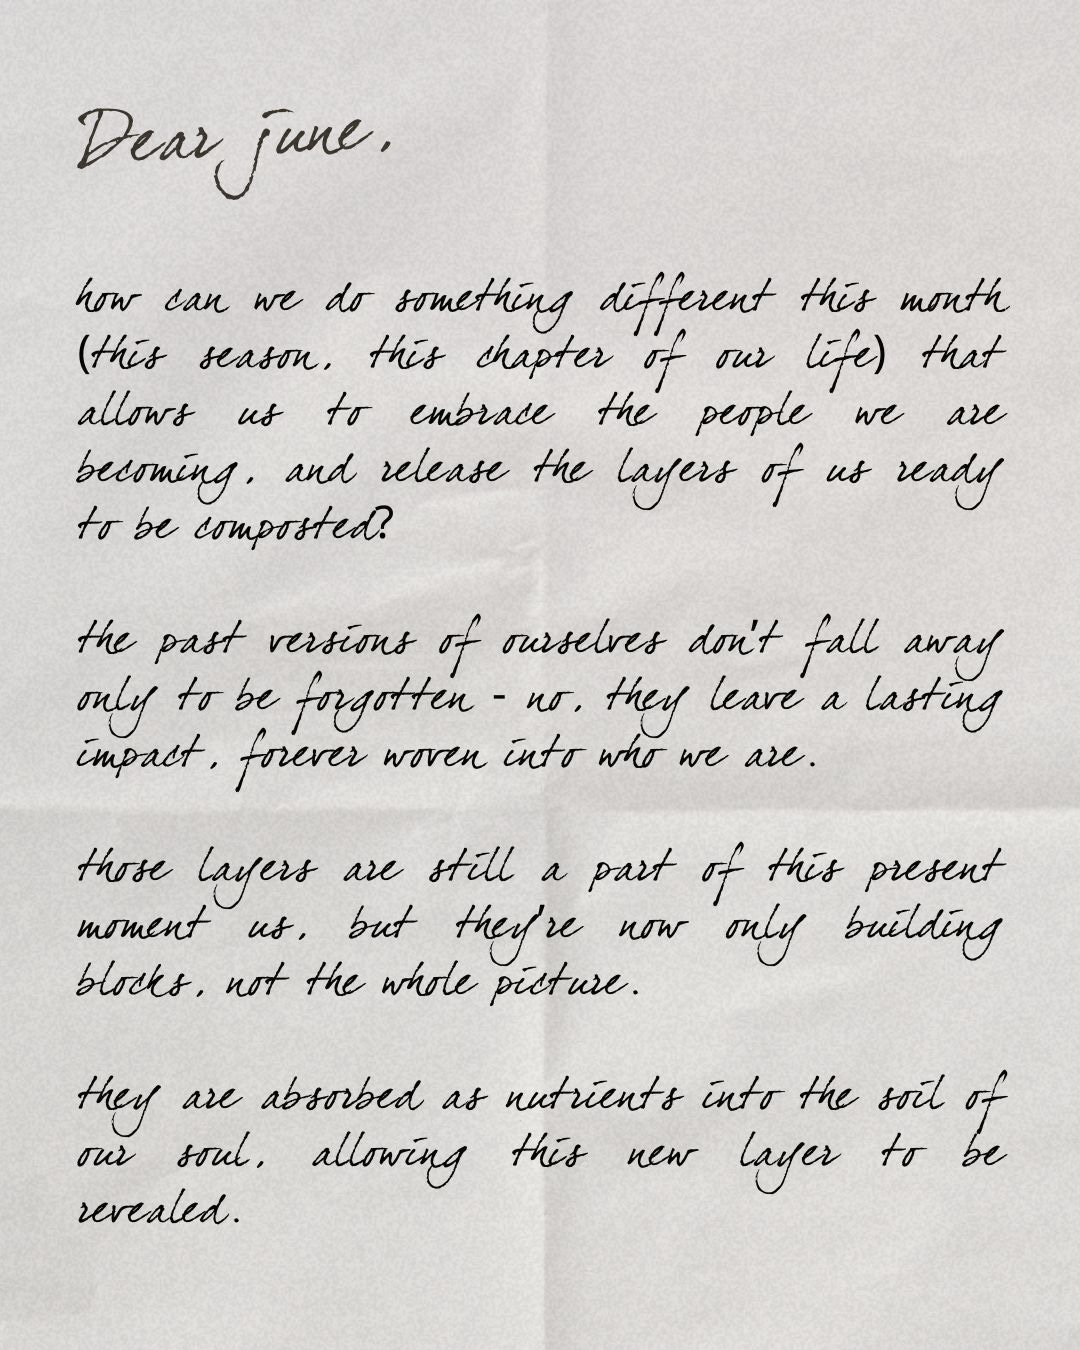 Dear june,
how can we do something different this month
(this season, this chapter of our life) that
allows us to embrace the people we are
becoming, and release the layers of us ready
to be composted?
the past versions of ourselves don't fall away
only to be forgotten - no, they leave a lasting
impact, forever woven into who we are.
those layers are still a part of this present
moment us, but they're now only building
blocks, not the whole picture.
they are absorbed as nutrients into the soil of
our soul, allowing this new layer to be
revealed.